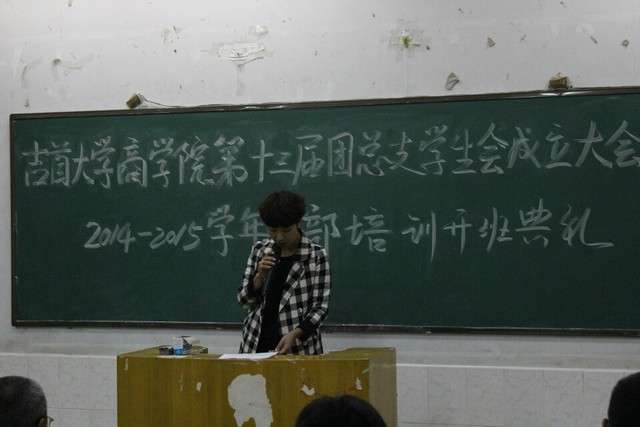 吉首大学商学院第十三届团总支学生会成立大会
2014-2015学年 部培训开班典礼